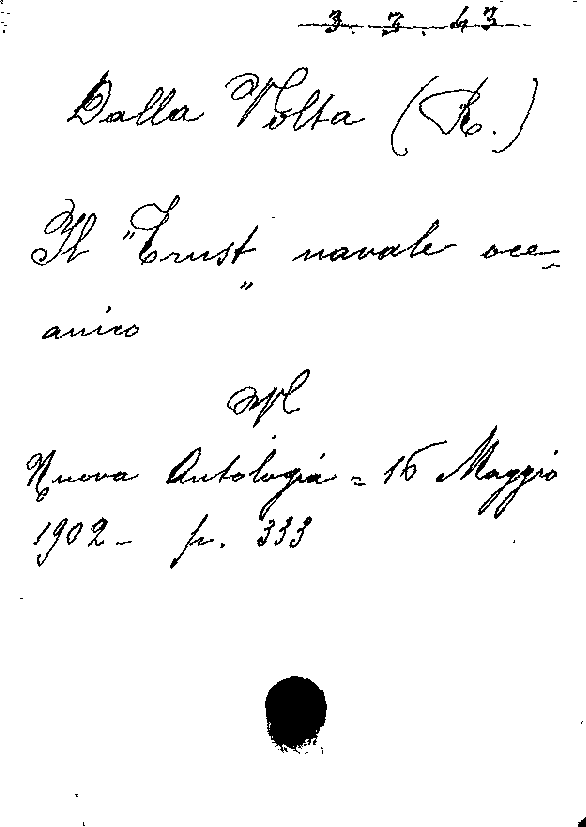 3. 3. 43
Dalla Volta (R.)
Il "Trust" navale oce-
anico
Nuova Antologia = 16 Maggio
1902 - p. 333